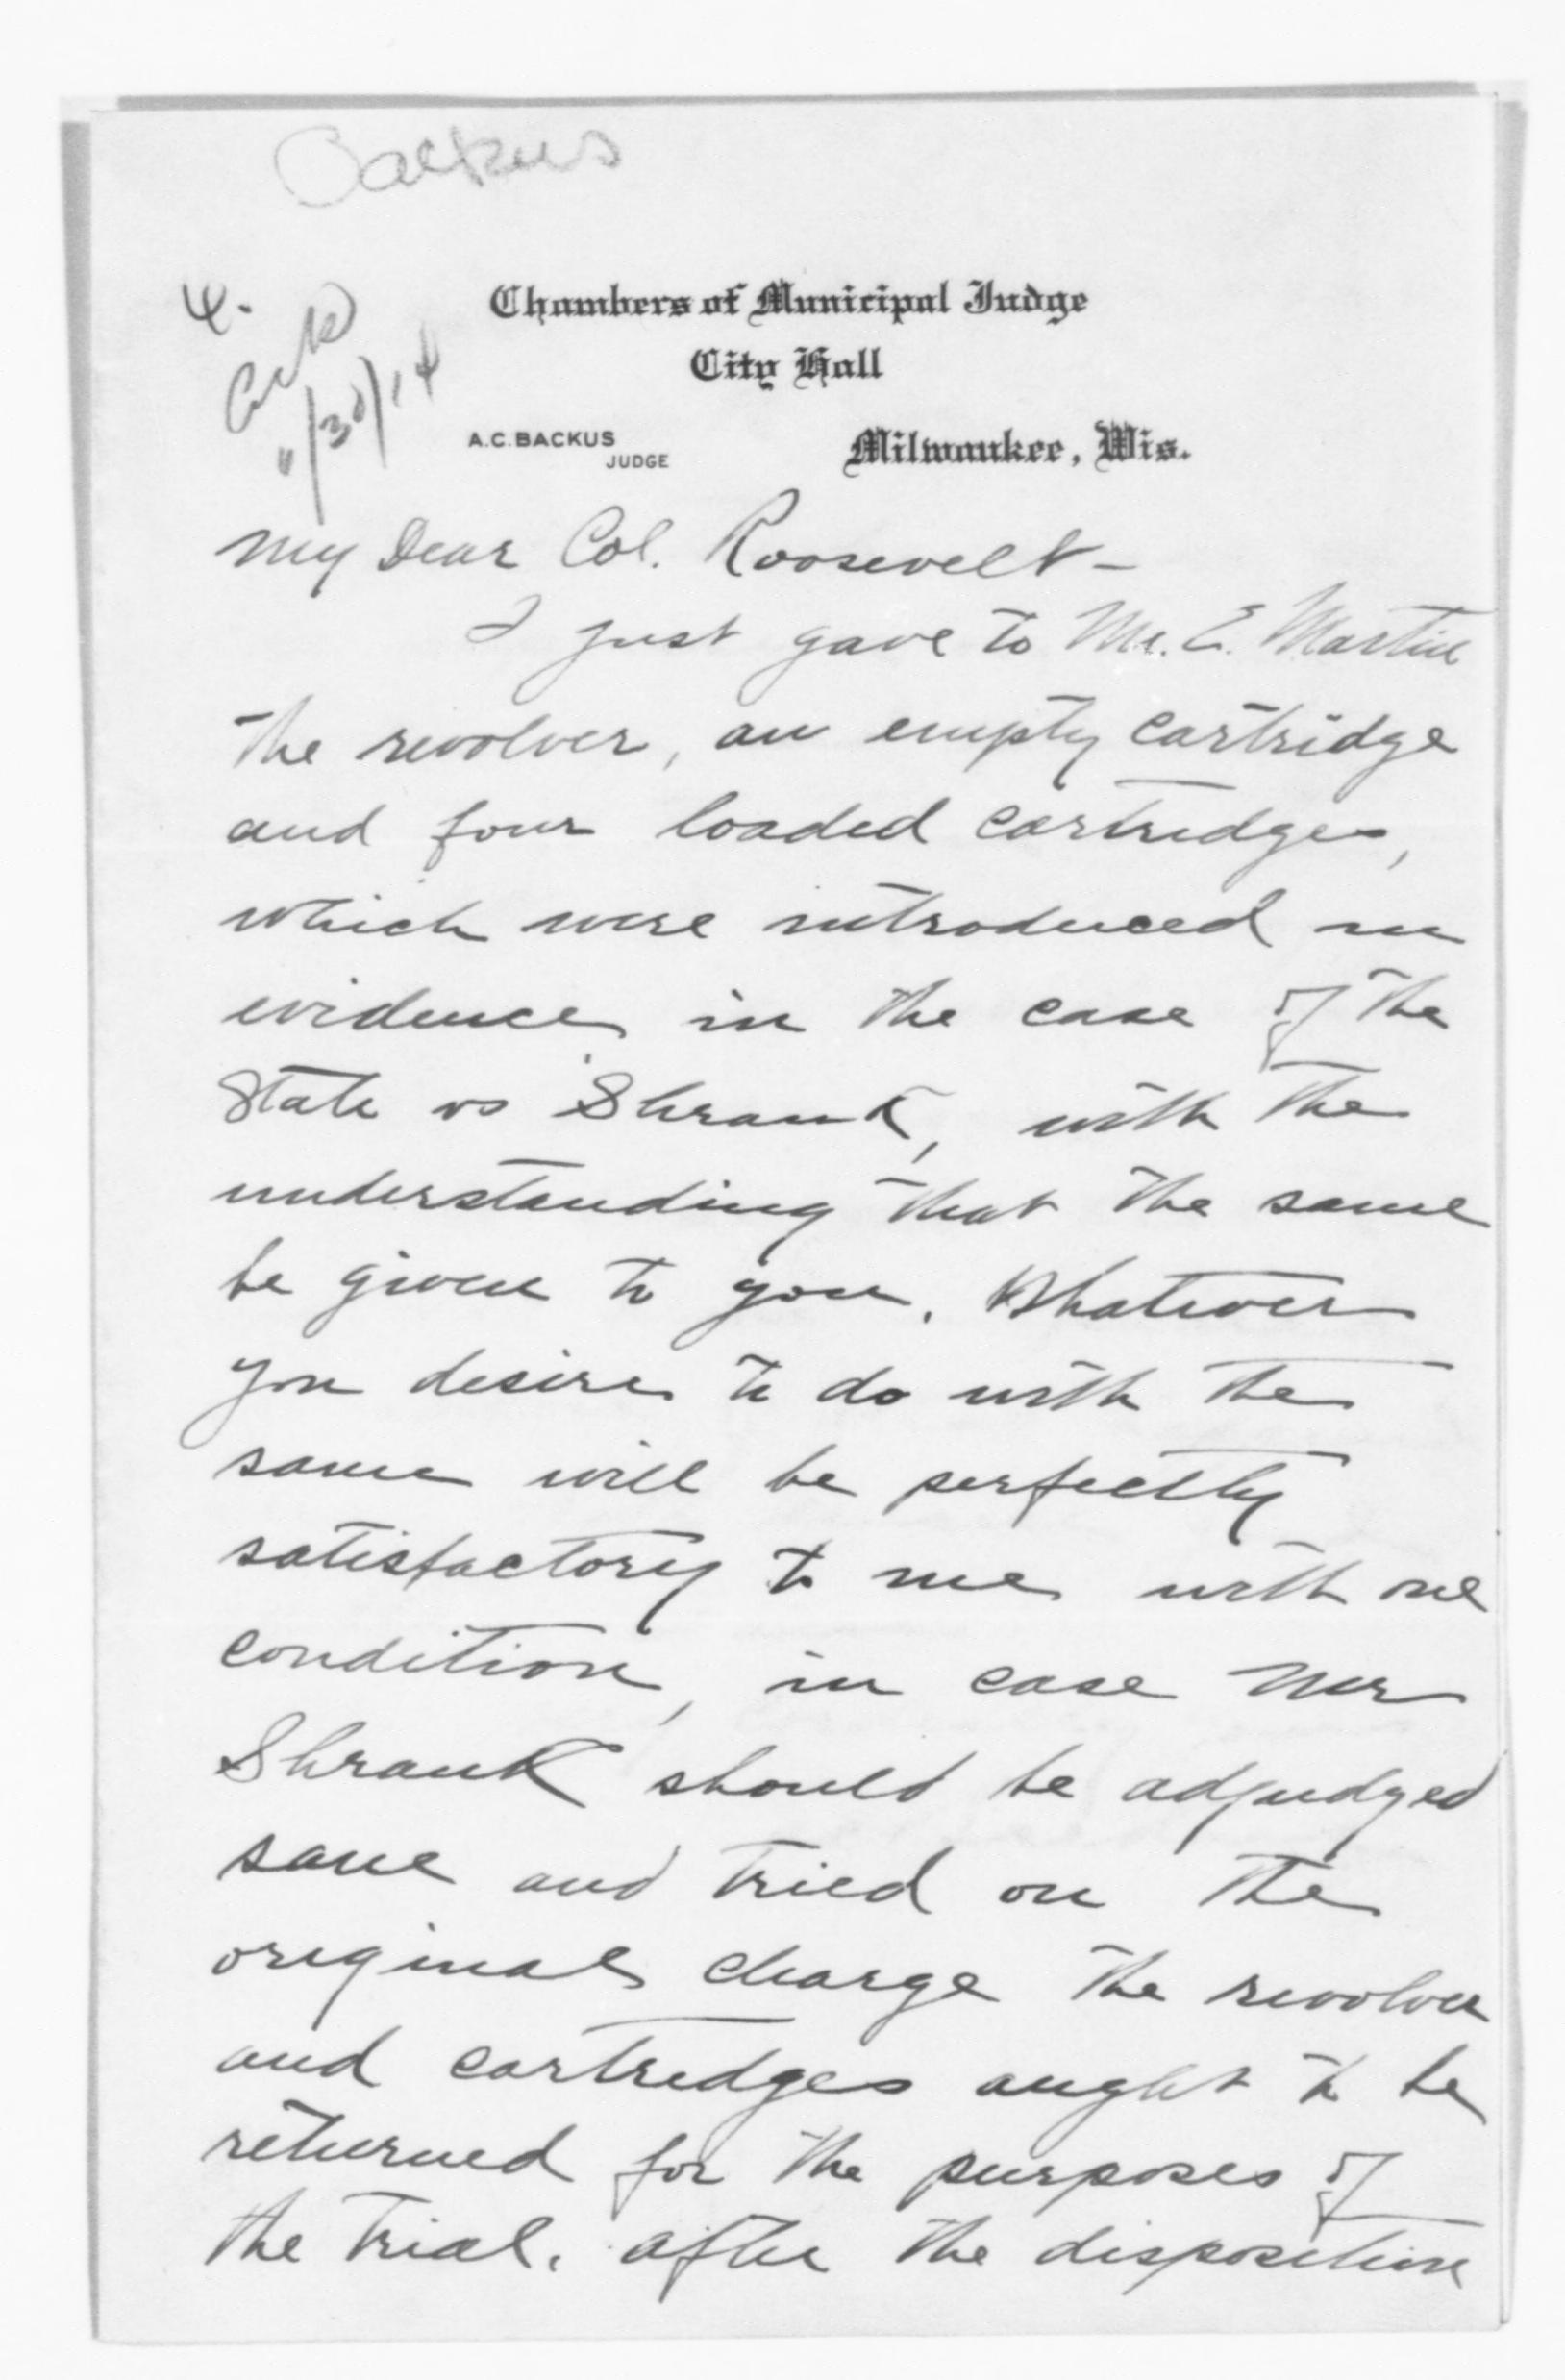 Backus
Ack
11/30/14
Chambers of Municipal Judge
City Hall
A.C. BACKUS
JUDGE
Milwaukee, Wis.
My Dear Col. Roosevelt -
I just gave to Mr. E. Martin
the revolver, an empty cartridge
and four loaded cartridges,
which were introduced in
evidence in the case of the
State vs Shrank, with the
understanding that the same
be given to you. Whatever
you desire to do with the
same will be perfectly
satisfactory to me with one
condition, in case Mr
Shrank should be adjudged
sane and tried on the
original charge the revolver
and cartridges aught to be
returned for the purposes of
the trial. After the disposition